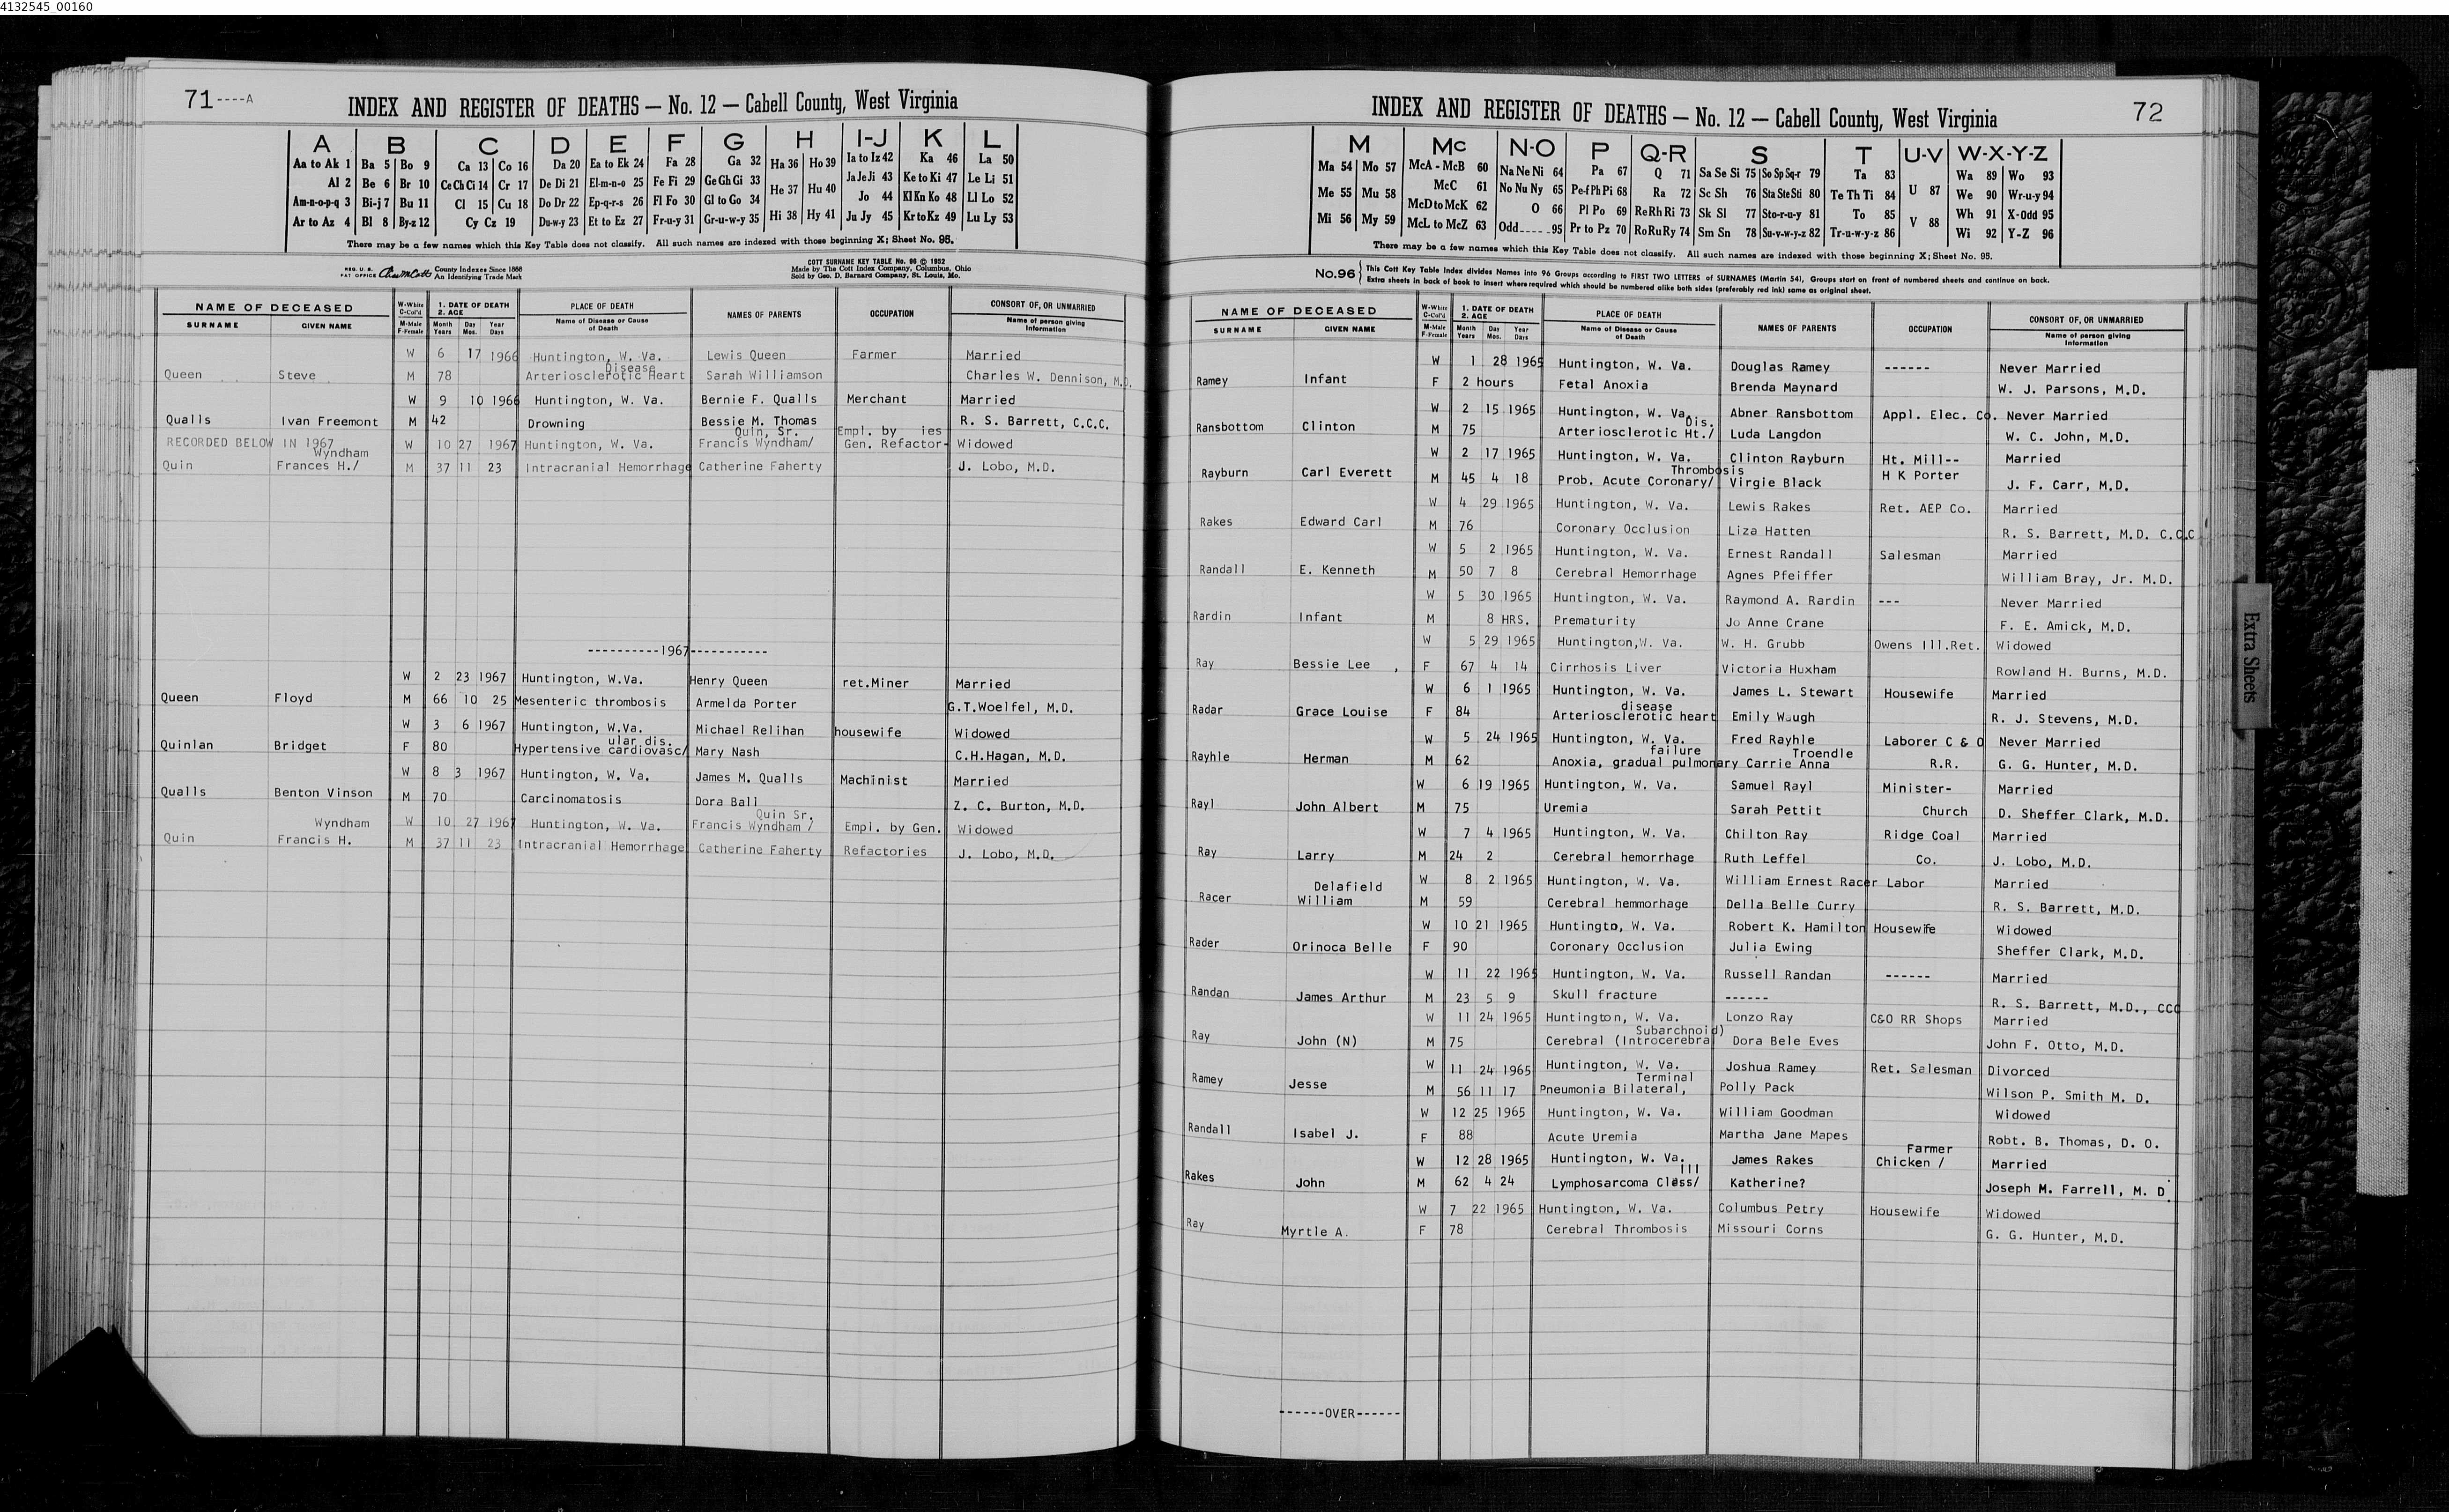 4132545_00160
71----A
INDEX AND REGISTER OF DEATHS — No. 12 — Cabell County, West Virginia
A B C D E F G H I-J K L
Aa to Ak 1 Ba 5 Bo 9 Ca 13 Co 16 Da 20 Ea to Ek 24 Fa 28 Ga 32 Ha 36 Ho 39 Ia to Iz 42 Ka 46 La 50
Al 2 Be 6 Br 10 Ce Ch Ci 14 Cr 17 De Di 21 El-m-n-o 25 Fe Fi 29 Ge Gh Gi 33 He 37 Hu 40 Ja Je Ji 43 Ke to Ki 47 Le Li 51
Am-n-o-p-q 3 Bi-j 7 Bu 11 Cl 15 Cu 18 Do Dr 22 Ep-q-r-s 26 Fl Fo 30 Gl to Go 34 Jo 44 Kl Kn Ko 48 Ll Lo 52
Ar to Az 4 Bl 8 By-z 12 Cy Cz 19 Du-w-y 23 Et to Ez 27 Fr-u-y 31 Gr-u-w-y 35 Hi 38 Hy 41 Ju Jy 45 Kr to Kz 49 Lu Ly 53
There may be a few names which this Key Table does not classify. All such names are indexed with those beginning X; Sheet No. 95.
REG. U. S. PAT. OFFICE County Indexes Since 1888
An Identifying Trade Mark
COTT SURNAME KEY TABLE No. 96 © 1952
Made by The Cott Index Company, Columbus, Ohio
Sold by Geo. D. Barnard Company, St. Louis, Mo.
NAME OF DECEASED W-White C-Col'd 1. DATE OF DEATH 2. AGE PLACE OF DEATH NAMES OF PARENTS OCCUPATION CONSORT OF, OR UNMARRIED
SURNAME GIVEN NAME M-Male F-Female Month Years Day Mos. Year Days Name of Disease or Cause of Death Name of person giving Information
W 6 17 1966 Huntington, W. Va. Lewis Queen Farmer Married
Disease
Queen Steve M 78 Arteriosclerotic Heart Sarah Williamson Charles W. Dennison, M.D.
W 9 10 1966 Huntington, W. Va. Bernie F. Qualls Merchant Married
Qualls Ivan Freemont M 42 Drowning Bessie M. Thomas R. S. Barrett, C.C.C.
Quin, Sr. Empl. by ies
RECORDED BELOW IN 1967 W 10 27 1967 Huntington, W. Va. Francis Wyndham/ Gen. Refactor- Widowed
Wyndham
Quin Frances H./ M 37 11 23 Intracranial Hemorrhage Catherine Faherty J. Lobo, M.D.
----------1967-----------
W 2 23 1967 Huntington, W.Va. Henry Queen ret.Miner Married
Queen Floyd M 66 10 25 Mesenteric thrombosis Armelda Porter G.T.Woelfel, M.D.
W 3 6 1967 Huntington, W.Va. Michael Relihan housewife Widowed
ular dis.
Quinlan Bridget F 80 Hypertensive cardiovasc/ Mary Nash C.H.Hagan, M.D.
W 8 3 1967 Huntington, W. Va. James M. Qualls Machinist Married
Qualls Benton Vinson M 70 Carcinomatosis Dora Ball Z. C. Burton, M.D.
Quin Sr.
Wyndham W 10 27 1967 Huntington, W. Va. Francis Wyndham / Empl. by Gen. Widowed
Quin Francis H. M 37 11 23 Intracranial Hemorrhage Catherine Faherty Refactories J. Lobo, M.D.
INDEX AND REGISTER OF DEATHS — No. 12 — Cabell County, West Virginia
72
M Mc N-O P Q-R S T U-V W-X-Y-Z
Ma 54 Mo 57 McA - McB 60 Na Ne Ni 64 Pa 67 Q 71 Sa Se Si 75 So Sp Sq-r 79 Ta 83 U 87 Wa 89 Wo 93
Me 55 Mu 58 McC 61 No Nu Ny 65 Pe-f Ph Pi 68 Ra 72 Sc Sh 76 Sta Ste Sti 80 Te Th Ti 84 We 90 Wr-u-y 94
McD to McK 62 O 66 Pl Po 69 Re Rh Ri 73 Sk Sl 77 Sto-r-u-y 81 To 85 V 88 Wh 91 X-Odd 95
Mi 56 My 59 McL to McZ 63 Odd-----95 Pr to Pz 70 Ro Ru Ry 74 Sm Sn 78 Su-v-w-y-z 82 Tr-u-w-y-z 86 Wi 92 Y-Z 96
There may be a few names which this Key Table does not classify. All such names are indexed with those beginning X; Sheet No. 95.
No.96 This Cott Key Table Index divides Names into 96 Groups according to FIRST TWO LETTERS of SURNAMES (Martin 54), Groups start on front of numbered sheets and continue on back.
Extra sheets in back of book to insert where required which should be numbered alike both sides (preferably red ink) same as original sheet.
NAME OF DECEASED W-White C-Col'd 1. DATE OF DEATH 2. AGE PLACE OF DEATH NAMES OF PARENTS OCCUPATION CONSORT OF, OR UNMARRIED
SURNAME GIVEN NAME M-Male F-Female Month Years Day Mos. Year Days Name of Disease or Cause of Death Name of person giving Information
W 1 28 1965 Huntington, W. Va. Douglas Ramey ------ Never Married
Ramey Infant F 2 hours Fetal Anoxia Brenda Maynard W. J. Parsons, M.D.
W 2 15 1965 Huntington, W. Va. Abner Ransbottom Appl. Elec. Co. Never Married
Dis.
Ransbottom Clinton M 75 Arteriosclerotic Ht./ Luda Langdon W. C. John, M.D.
W 2 17 1965 Huntington, W. Va. Clinton Rayburn Ht. Mill-- Married
Thrombosis
Rayburn Carl Everett M 45 4 18 Prob. Acute Coronary/ Virgie Black H K Porter J. F. Carr, M.D.
W 4 29 1965 Huntington, W. Va. Lewis Rakes Ret. AEP Co. Married
Rakes Edward Carl M 76 Coronary Occlusion Liza Hatten R. S. Barrett, M.D. C.C.C
W 5 2 1965 Huntington, W. Va. Ernest Randall Salesman Married
Randall E. Kenneth M 50 7 8 Cerebral Hemorrhage Agnes Pfeiffer William Bray, Jr. M.D.
W 5 30 1965 Huntington, W. Va. Raymond A. Rardin --- Never Married
Rardin Infant M 8 HRS. Prematurity Jo Anne Crane F. E. Amick, M.D.
W 5 29 1965 Huntington,W. Va. W. H. Grubb Owens Ill.Ret. Widowed
Ray Bessie Lee , F 67 4 14 Cirrhosis Liver Victoria Huxham Rowland H. Burns, M.D.
W 6 1 1965 Huntington, W. Va. James L. Stewart Housewife Married
disease
Radar Grace Louise F 84 Arteriosclerotic heart Emily Waugh R. J. Stevens, M.D.
W 5 24 1965 Huntington, W. Va. Fred Rayhle Laborer C & O Never Married
failure Troendle
Rayhle Herman M 62 Anoxia, gradual pulmonary Carrie Anna R.R. G. G. Hunter, M.D.
W 6 19 1965 Huntington, W. Va. Samuel Rayl Minister- Married
Rayl John Albert M 75 Uremia Sarah Pettit Church D. Sheffer Clark, M.D.
W 7 4 1965 Huntington, W. Va. Chilton Ray Ridge Coal Married
Ray Larry M 24 2 Cerebral hemorrhage Ruth Leffel Co. J. Lobo, M.D.
Delafield W 8 2 1965 Huntington, W. Va. William Ernest Racer Labor Married
Racer William M 59 Cerebral hemmorhage Della Belle Curry R. S. Barrett, M.D.
W 10 21 1965 Huntingto, W. Va. Robert K. Hamilton Housewife Widowed
Rader Orinoca Belle F 90 Coronary Occlusion Julia Ewing Sheffer Clark, M.D.
W 11 22 1965 Huntington, W. Va. Russell Randan ------ Married
Randan James Arthur M 23 5 9 Skull fracture ------ R. S. Barrett, M.D., CCC
W 11 24 1965 Huntington, W. Va. Lonzo Ray C&O RR Shops Married
Subarchnoid)
Ray John (N) M 75 Cerebral (Introcerebral Dora Bele Eves John F. Otto, M.D.
W 11 24 1965 Huntington, W. Va. Joshua Ramey Ret. Salesman Divorced
Terminal
Ramey Jesse M 56 11 17 Pneumonia Bilateral, Polly Pack Wilson P. Smith M. D.
W 12 25 1965 Huntington, W. Va. William Goodman Widowed
Randall Isabel J. F 88 Acute Uremia Martha Jane Mapes Robt. B. Thomas, D. O.
Farmer
W 12 28 1965 Huntington, W. Va. James Rakes Chicken / Married
III
Rakes John M 62 4 24 Lymphosarcoma Class/ Katherine? Joseph M. Farrell, M. D.
W 7 22 1965 Huntington, W. Va. Columbus Petry Housewife Widowed
Ray Myrtle A. F 78 Cerebral Thrombosis Missouri Corns G. G. Hunter, M.D.
------OVER------
Extra Sheets